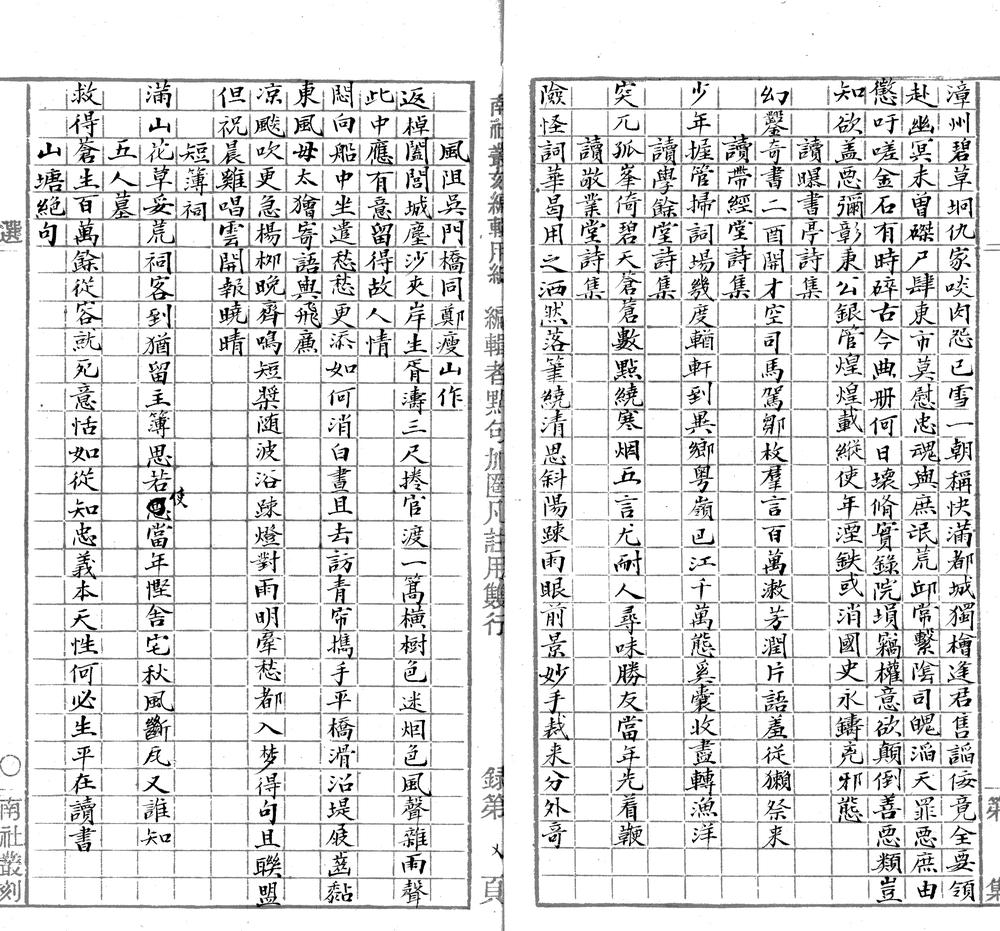 漳州碧草坰仇家啖肉怨已雪一朝稱快滿都城獨檜逢君售諂佞竟全要領
赴幽冥未曾磔尸肆東市莫慰忠魂與庶氓荒邱常繫陰司魄滔天罪惡庶由
懲吁嗟金石有時碎古今典册何日壞脩實錄院塤竊權意欲顛倒善惡類豈
知欲盖惡彌彰東公銀管煌煌載縱使年湮鉄或消國史永鑄兇邪態
讀曝書亭詩集
幻鑿奇書二酉開才空司馬駕鄒枚羣言百萬漱芳潤片語羞從獺祭来
讀帶經堂詩集
少年握管掃詞場幾度輶軒到異鄉粤嶺巴江千萬態奚囊收盡轉漁洋
讀學餘堂詩集
突兀孤峯倚碧天蒼蒼數點繞寒烟五言尤耐人尋味勝友當年先着鞭
讀敬業堂詩集
險怪詞華昌用之洒然落筆繞清思斜陽踈雨眼前景妙手裁来分外奇
南社叢刻編輯用紙 編輯者點句加圈凡註用雙行
錄第 頁
第 集
風阻吳門橋同鄭瘦山作
返棹闔閭城塵沙夾岸生胥濤三尺捲官渡一篙橫樹色迷烟色風聲雜雨聲
此中應有意留得故人情
悶向船中坐遣愁愁更添如何消白晝且去訪青帘携手平橋滑沿堤屐齒黏
東風毋太獪寄語與飛廉
凉飈吹更急楊柳晚齊鳴短槳随波浴踈燈對雨明羣愁都入梦得句且聯盟
但祝晨雞唱雲開報曉晴
短簿祠
滿山花草妥荒祠客到猶留主簿思若使當年慳舍宅秋風斷瓦又誰知
五人墓
救得蒼生百萬餘從容就死意恬如從知忠義本天性何必生平在讀書
山塘絕句
選
南社叢刻